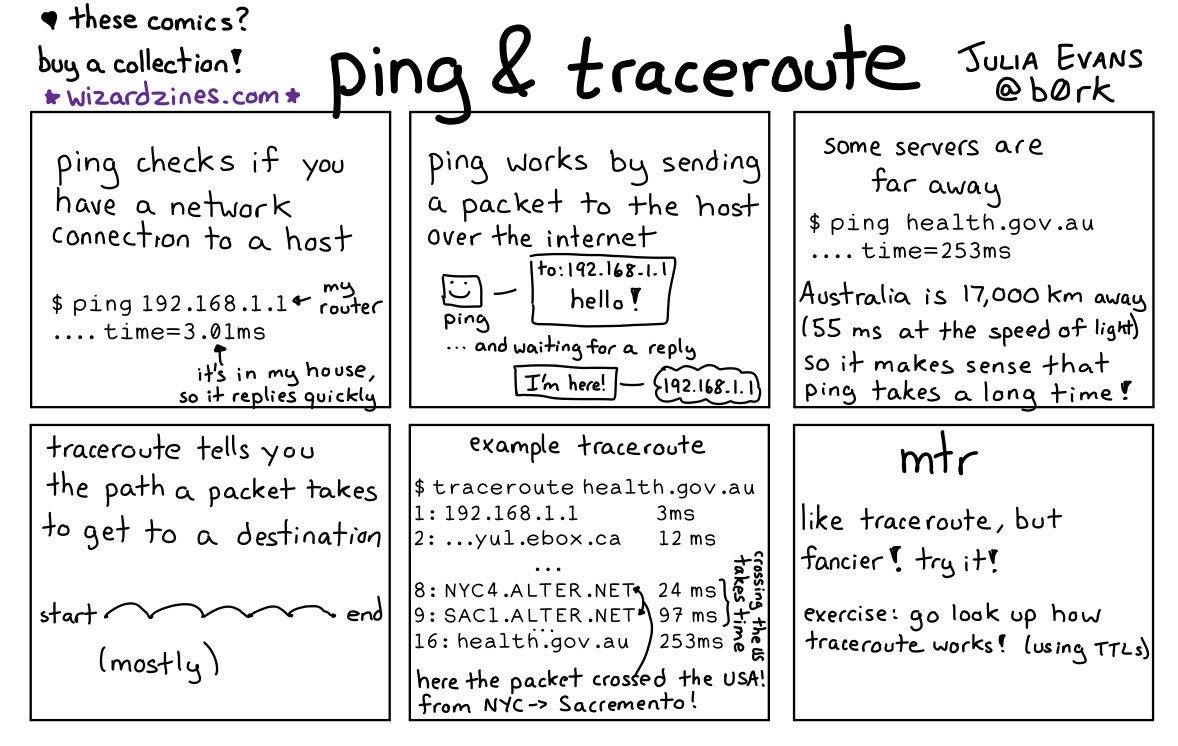 ♥ these comics?
buy a collection!
★ wizardzines.com ★
ping & traceroute
JULIA EVANS
@b0rk
ping checks if you
have a network
connection to a host
$ ping 192.168.1.1 ← my
router
.... time=3.01ms
it's in my house,
so it replies quickly
ping works by sending
a packet to the host
over the internet
to: 192.168.1.1
hello!
ping
... and waiting for a reply
I'm here!
192.168.1.1
some servers are
far away
$ ping health.gov.au
.... time=253ms
Australia is 17,000 km away
(55 ms at the speed of light)
so it makes sense that
ping takes a long time!
traceroute tells you
the path a packet takes
to get to a destination
start end
(mostly)
example traceroute
$ traceroute health.gov.au
1: 192.168.1.1 3ms
2: ...yul.ebox.ca 12 ms
...
8: NYC4.ALTER.NET 24 ms
9: SAC1.ALTER.NET 97 ms
...
16: health.gov.au 253ms
crossing the US
takes time
here the packet crossed the USA!
from NYC -> Sacremento!
mtr
like traceroute, but
fancier! try it!
exercise: go look up how
traceroute works! (using TTLs)